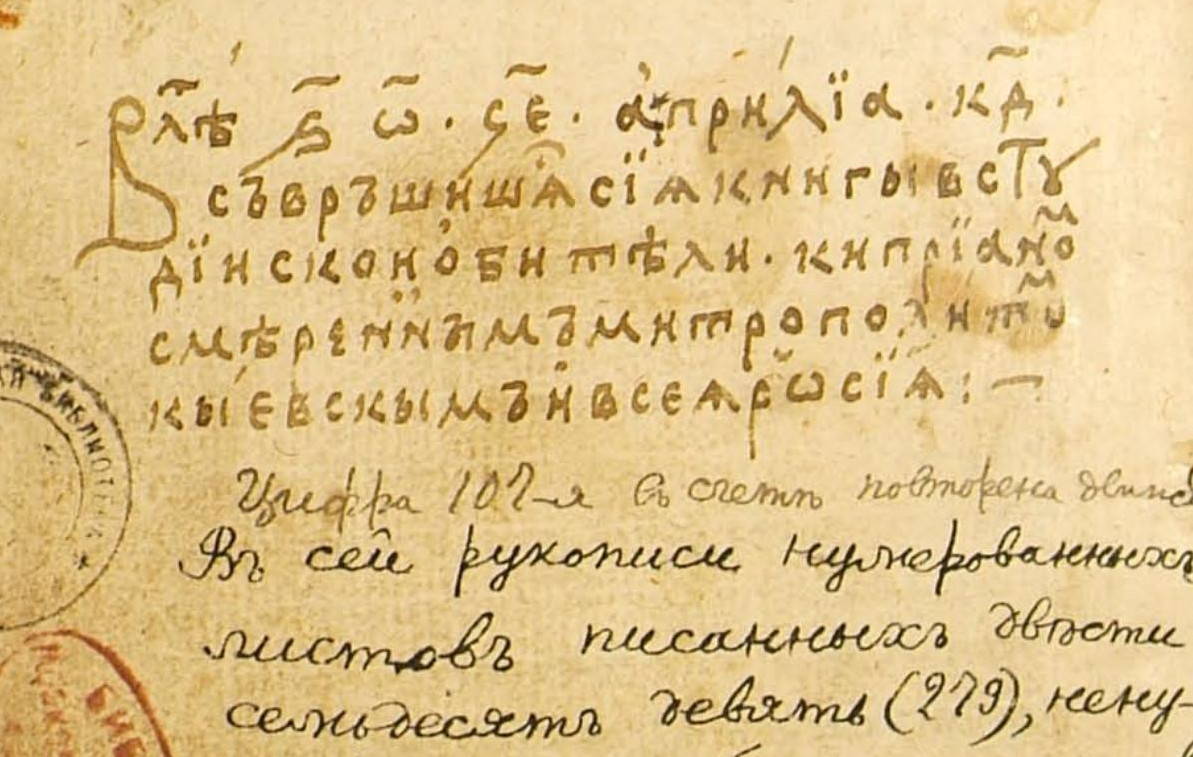 В лѣ҃ ҂ѕ҃ ѡ҃ · ҁ҃е · а҆прилїа · к҃д ·
съвръшишѧ сїѧ книгы в сту
дїискои ѡбители · кипрїано̑
смѣреннымъ митрополито̑
кыевскымъ и҆ всеѧ рѡсїѧ :—
Цифра 107-я въ счетѣ повторена
Въ сей рукописи нумерованныхъ
листовъ писанныхъ двѣсти
семьдесятъ девять (279), нену-
БИБЛИОТЕКА
БИБ